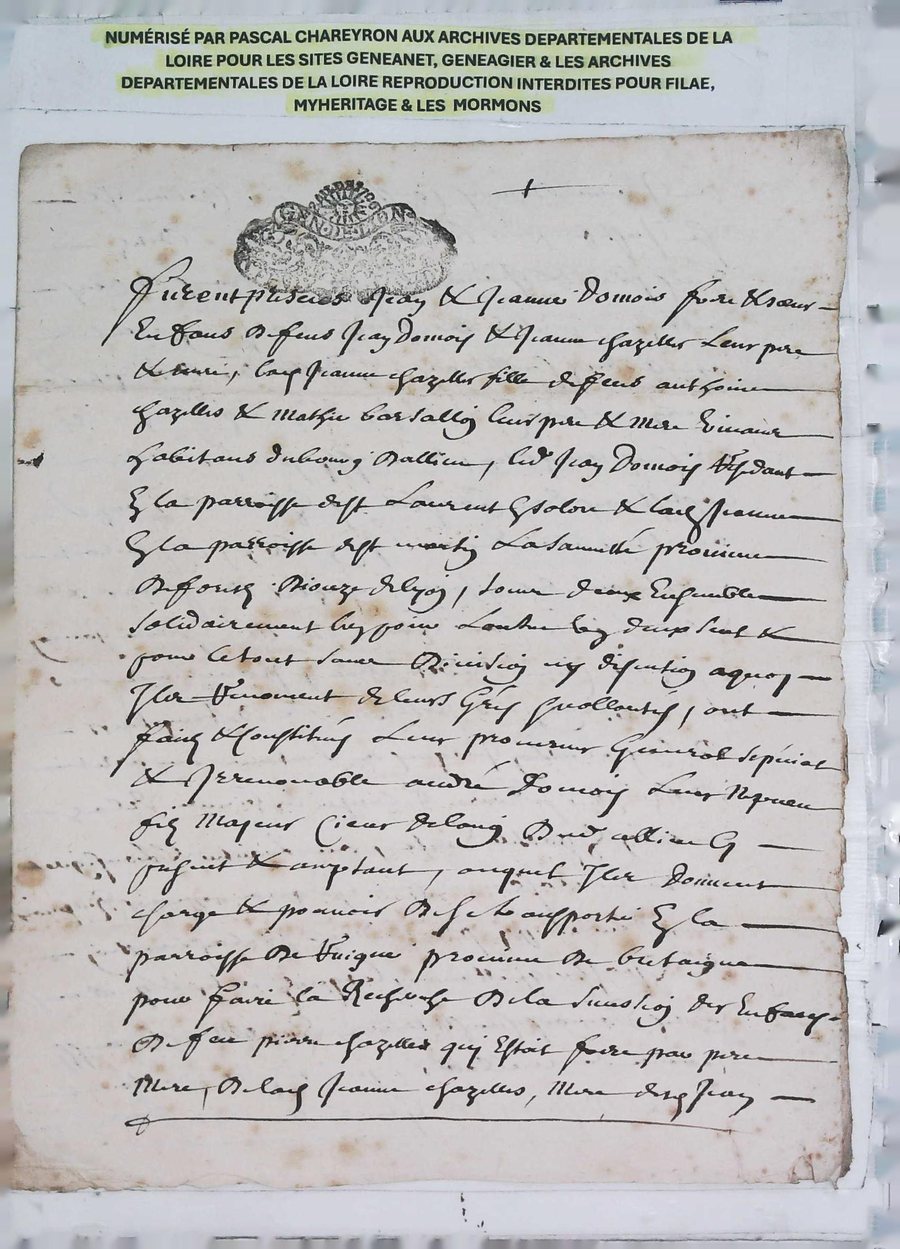 NUMÉRISÉ PAR PASCAL CHAREYRON AUX ARCHIVES DEPARTEMENTALES DE LA
LOIRE POUR LES SITES GENEANET, GENEAGIER & LES ARCHIVES
DEPARTEMENTALES DE LA LOIRE REPRODUCTION INTERDITES POUR FILAE,
MYHERITAGE & LES MORMONS
GEN·DE·LION
furent presens Jean & Jeanne Domois frere & sœur
Enfans de feus Jean Domois & Jeanne chazelles Leur pere
& mere, lad Jeanne chazelles fille de feus anthoine
chazelles & mathie leur pere & mere vivans
habitans du bourg Dallieu, led Jean Domois
En la parroisse de st Laurent & lad Jeanne
En la parroisse de st martin Lasauveté province
De forez Dioceze de lyon, tous deux Ensemble
solidairement lun pour Lautre un deux seul &
pour le tout sans Division ny discution aquoy
Ils Renoncent de leurs Grés & vollontés, ont
faict & Constitués Leur procureur General & spécial
& Irrevocable andré Domois Leur Nepveu
filz Majeur dallieu Cy
present & acceptant, auquel Ils Donnent
charge & pouvoir De se transporter En la
parroisse De province De bretaigne
pour faire la Recherche De la succession des Enfans
De feu pierre chazelles quy Estoit frere par pere
Mere, De lad Jeanne chazelles, Mere desd Jean